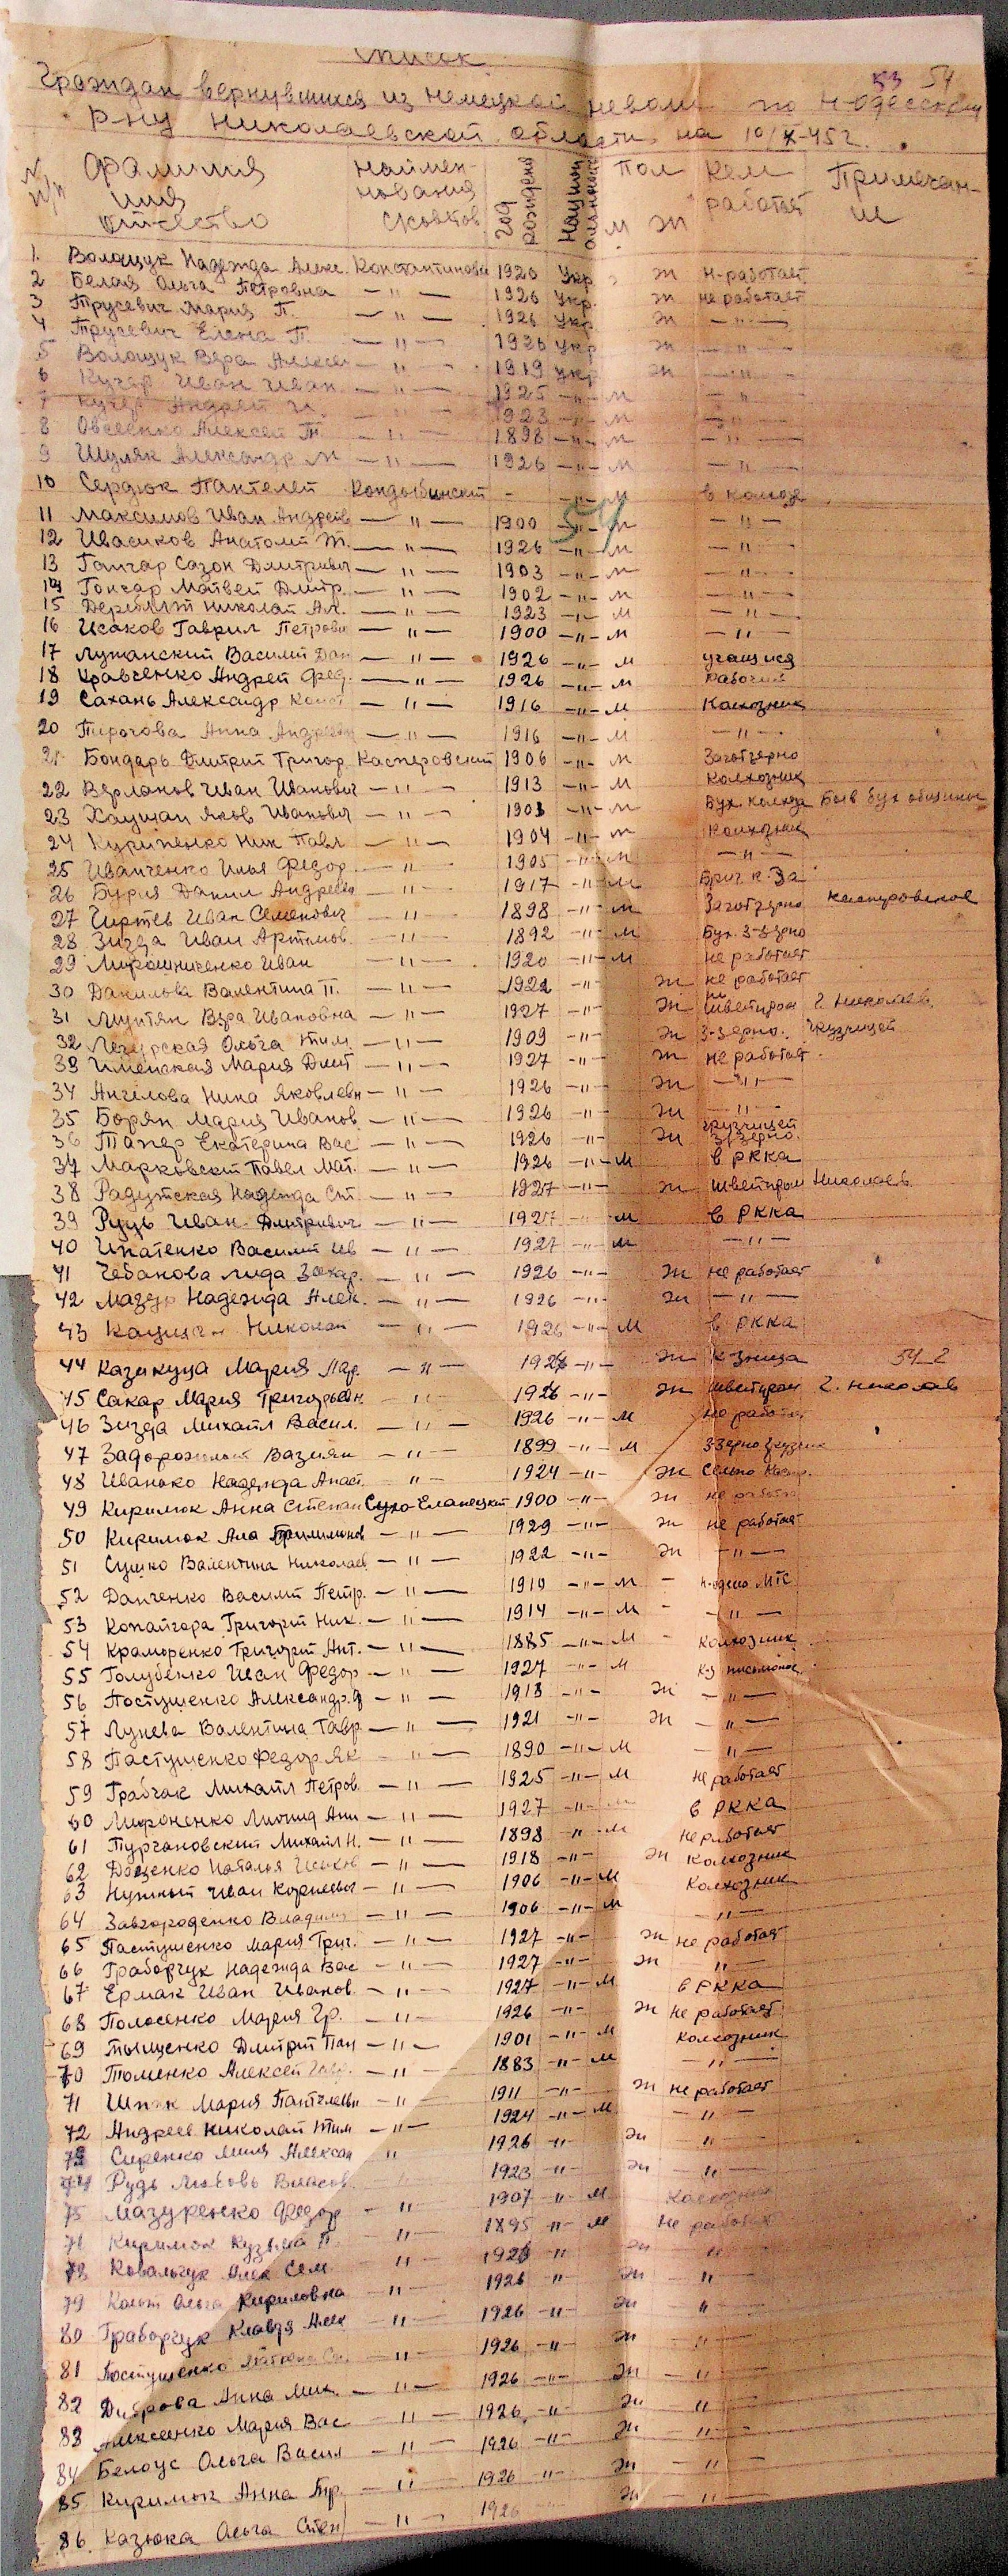 Список
53 54
Граждан вернувшихся из немецкой неволи по Н-Одесском
р-ну Николаевской области на 10/X-45 г.
№ п/п Фамилия имя отчество Наимен-нования с/советов Год рождения Национальность Пол М Ж Кем работает Примечан-ие
1. Волощук Надежда Алекс. Константиновск 1920 Укр. ж н-работает
2 Белая Ольга Петровна —"— 1926 Укр. ж не работает
3 Трусевич Мария П. —"— 1926 Укр ж —"—
4 Трусевич Елена П. —"— 1926 Укр ж —"—
5 Волощук Вера Алексе —"— 1919 Укр ж —"—
6 Кучер Иван Иван. —"— 1925 —"— м —"—
7 Кучер Андрей И. —"— 1923 —"— м —"—
8 Овсеенко Алексей —"— 1898 —"— м —"—
9 Шуляк Александр М —"— 1926 —"— м —"—
10 Сердюк Пантелей Кондыбинский - —"— м в колхозе
54
11 Максимов Иван Андреев —"— 1900 —"— м —"—
12 Ивасиков Анатолий —"— 1926 —"— м —"—
13 Гончар Сазон Дмитривич —"— 1903 —"— м —"—
14 Гончар Матвей Дмитр. —"— 1902 —"— м —"—
15 Николай Ал. —"— 1923 —"— м —"—
16 Исаков Гаврил Петрови —"— 1900 —"— м —"—
17 Лужанский Василий Дан —"— 1926 —"— м учащийся
18 Кравченко Андрей Фед. —"— 1926 —"— м Рабочий
19 Сахань Александр Конст —"— 1916 —"— м Колхозник
20 Пирогова Анна Андреевн —"— 1916 —"— м —"—
21 Бондарь Дмитрий Григор Касперовский 1906 —"— м Заготзерно
22 Верланов Иван Иванович —"— 1913 —"— м Колхозник
23 Хаущан Яков Иванович —"— 1903 —"— м Бух. колхоза Был бух общины
24 Куриленко Ник Павл —"— 1904 —"— м Колхозник
25 Иванченко Илья Федор. —"— 1905 —"— м —"—
26 Бурия Данил Андреев —"— 1917 —"— м Бриг к-за
27 Чиртев Иван Семенович —"— 1898 —"— м Заготзерно Касперовское
28 Зизда Иван Артемов. —"— 1892 —"— м Бух. З-зерно
29 Мирошниченко Иван —"— 1920 —"— м не работает
30 Данилова Валентина П. —"— 1922 —"— ж не работает
31 Мунтян Вера Ивановна —"— 1927 —"— ж Швейпром г. Николаев.
32 Ольга Тим. —"— 1909 —"— ж З-зерно. Грузчицей
33 Мария Дмит —"— 1927 —"— ж не работает
34 Ангелова Нина Яковлевн —"— 1926 —"— ж —"—
35 Борян Мария Иванов —"— 1926 —"— ж —"—
36 Тапер Екатерина Вас —"— 1926 —"— ж грузчицей З/зерно.
37 Марковский Павел Мат. —"— 1926 —"— м в РККА
38 Радутская Надежда Ст. —"— 1927 —"— ж Швейпром Николаев.
39 Рудь Иван Дмитривич —"— 1927 —"— м в РККА
40 Игнатенко Василий Ив —"— 1927 —"— м —"—
41 Чебанова Лида Захар. —"— 1926 —"— ж не работает
42 Мазур Надежда Алек. —"— 1926 —"— ж —"—
43 Николай —"— 1926 —"— м в РККА
44 Казикуца Мария Лар. —"— 1926 —"— ж 54_2
45 Сакар Мария Григорьевн —"— 1926 —"— ж Швейпром г. Николаев
46 Зизда Михаил Васил. —"— 1926 —"— м не работает
47 Задорожный —"— 1899 —"— м З-Зерно грузчик
48 Иванько Надежда Анаст. —"— 1924 —"— ж
49 Кирилюк Анна Степан Сухо-Еланецкий 1900 —"— ж не работа
50 Кирилюк Ала —"— 1929 —"— ж не работает
51 Сушко Валентина Николаев —"— 1922 —"— ж —"—
52 Данченко Василий Петр. —"— 1910 —"— м — Н-Одесс МТС
53 Копайгора Григорий Ник. —"— 1914 —"— м - —"—
54 Краморенко Григорий Ант. —"— 1885 —"— м - Колхозник
55 Голубенко Иван Федор —"— 1927 —"— м
56 Постушенко Александр. Ф —"— 1918 —"— ж —"—
57 Лунева Валентина Гавр —"— 1921 —"— ж —"—
58 Пастушенко Федор Як —"— 1890 —"— м —"—
59 Грабчак Михаил Петров. —"— 1925 —"— м не работает
60 Лифоненко Ан —"— 1927 —"— м в РККА
61 Турчановский Михаил Н. —"— 1898 " м не работает
62 Доценко Наталья —"— 1918 —"— ж Колхозник
63 Нужный Иван Корнеевич —"— 1906 —"— м Колхозник
64 Завгороденко Владимир —"— 1906 —"— м —"—
65 Пастушенко Мария Григ. —"— 1927 —"— ж не работает
66 Граборчук Надежда Вас —"— 1927 —"— ж "
67 Ермак Иван Иванов. —"— 1927 —"— м в РККА
68 Полосенко Мария Гр. —"— 1926 —"— ж не работает
69 Тыщенко Дмитрий Пан —"— 1901 —"— м Колхозник
70 Томенко Алексей —"— 1883 —"— м —"—
71 Шпак Мария Пантелевн —" 1911 —"— ж не работает
72 Андреев Николай Тим —"— 1924 —"— м —"—
73 Сиренко Алексан " 1926 —"— ж "
74 Рудь Любовь Власов. 1923 —"— ж "
75 Мазуренко Федор —" 1907 " м Колхозник
71 Кирилюк Кузьма П. " 1895 " м не работает
78 Ковальчук Сем " 1926 " ж "
79 Ольга Кириловна —"— 1926 " ж "
80 Граборчук Клавдя Алек —"— 1926 —"— ж "
81 Постушенко —"— 1926 —"— ж "
82 Диброва Анна Мих. —"— 1926 —"— ж —"—
83 Алексеенко Мария Вас —"— 1926 " ж "
84 Белоус Ольга Васил —"— 1926 —"— ж —"—
85 Кирилюк Анна Гр. —"— 1926 " ж —"—
86 Казюка Ольга Степ —"— 1926 ж —"—